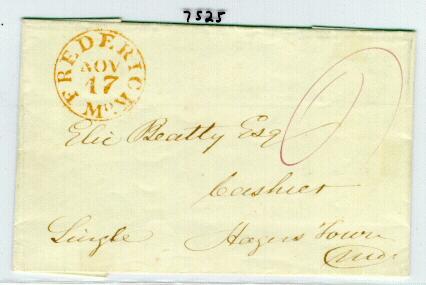 7525
FREDERICK
NOV
17
Md.
Elie Beatty Esq
Cashier
Single Hagers Town
Md.